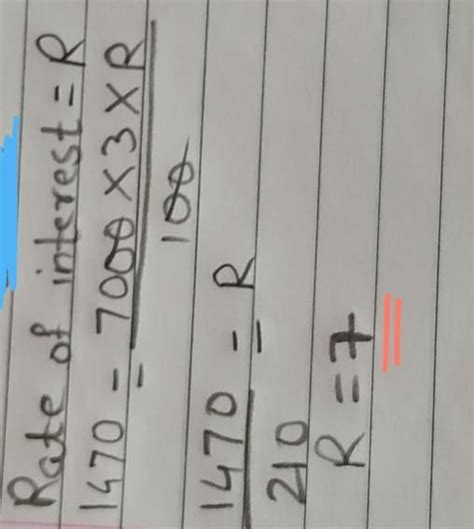 Rate of interest = R
1470 = 7000 × 3 × R
100
1470 = R
210
R = 7